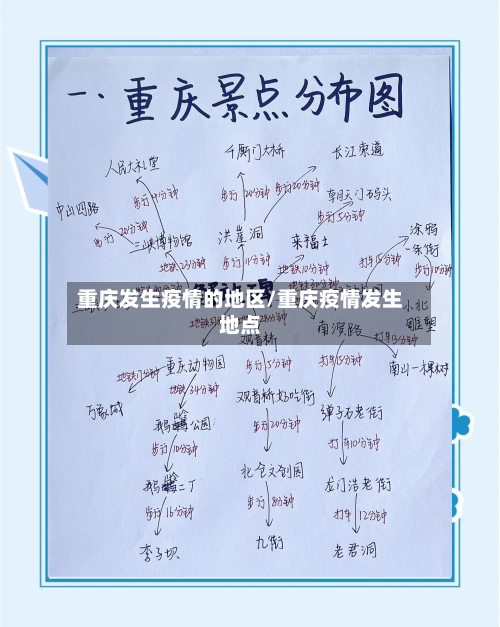 一·重庆景点分布图
人民大礼堂
千厮门大桥
长江索道
步行
步行 20分钟
步行20分钟
朝天门码头
中山四路
步行5分钟
步行 20分钟
三峡博物馆
洪崖洞
来福士
涂鸦
一条街
地铁23分钟
步行 11分钟
地铁10分钟
打车15分钟
步行10分钟
重庆发生疫情的地区/重庆疫情发生
地点
小北
雕塑
观音桥
南滨路
打车13分钟
重庆动物园
步行 15分钟
打车15分钟
南山一棵树
地铁34分钟
万象城
观音桥好吃街
弹子石老街
鹅岭公园
步行 20分钟
打车10分钟
步行10分钟
北仓文创园
龙门浩老街
鹅岭二丁
步行 8分钟
打车 12分钟
步行 16分钟
九街
李子坝
老君洞